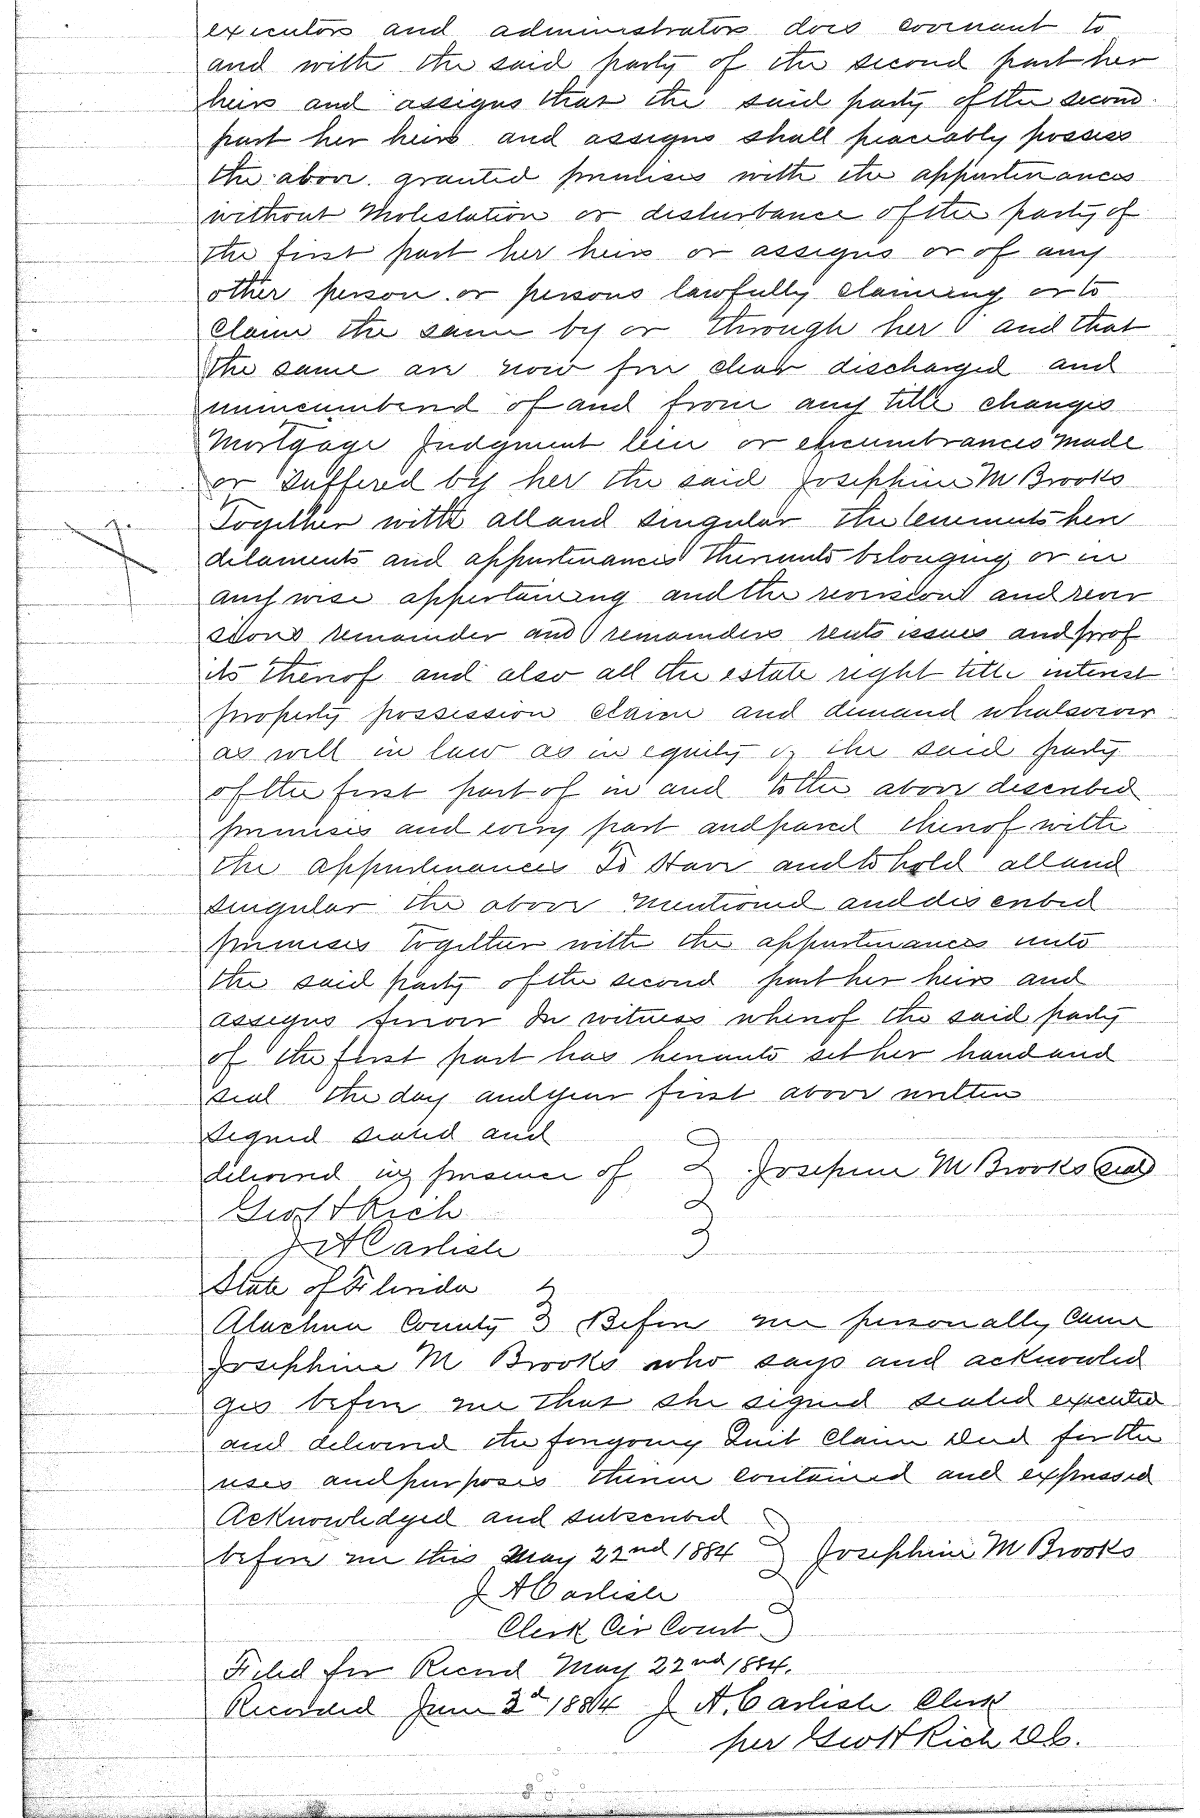 executors and administrators does covenant to
and with the said party of the second part her
heirs and assigns that the said party of the second
part her heirs and assigns shall peaceably possess
the above granted premises with the appurtenances
without Molestation or disturbance of the party of
the first part her heirs or assigns or of any
other person or persons lawfully claiming or to
claim the same by or through her and that
the same are now free clear discharged and
unincumbered of and from any title changes
Mortgage Judgment lien or encumbrances made
or suffered by her the said Josephine M Brooks
Together with all and singular the tenements here
ditaments and appurtenances thereunto belonging or in
any wise appertaining and the revision and rever
sions remainder and remainders rents issues and prof
its thereof and also all the estate right title interest
property possession claim and demand whatsoever
as well in law as in equity of the said party
of the first part of in and to the above described
premises and every part and parcel thereof with
the appurtenances To Have and to hold all and
singular the above mentioned and described
premises together with the appurtenances unto
the said party of the second part her heirs and
assigns forever In witness whereof the said party
of the first part has hereunto set her hand and
seal the day and year first above written
Signed sealed and
delivered in presence of Josephine M Brooks (seal)
Geo H Rich
J A Carlisle
State of Florida
Alachua County Before me personally came
Josephine M Brooks who says and acknowled
ges before me that she signed sealed executed
and delivered the foregoing Quit Claim Deed for the
uses and purposes therein contained and expressed
Acknowledged and subscribed
before me this May 22nd 1884 Josephine M Brooks
J A Carlisle
Clerk Cir Court
Filed for Record May 22nd 1884.
Recorded June 3d 1884 J A. Carlisle Clerk
per Geo H Rich D.C.